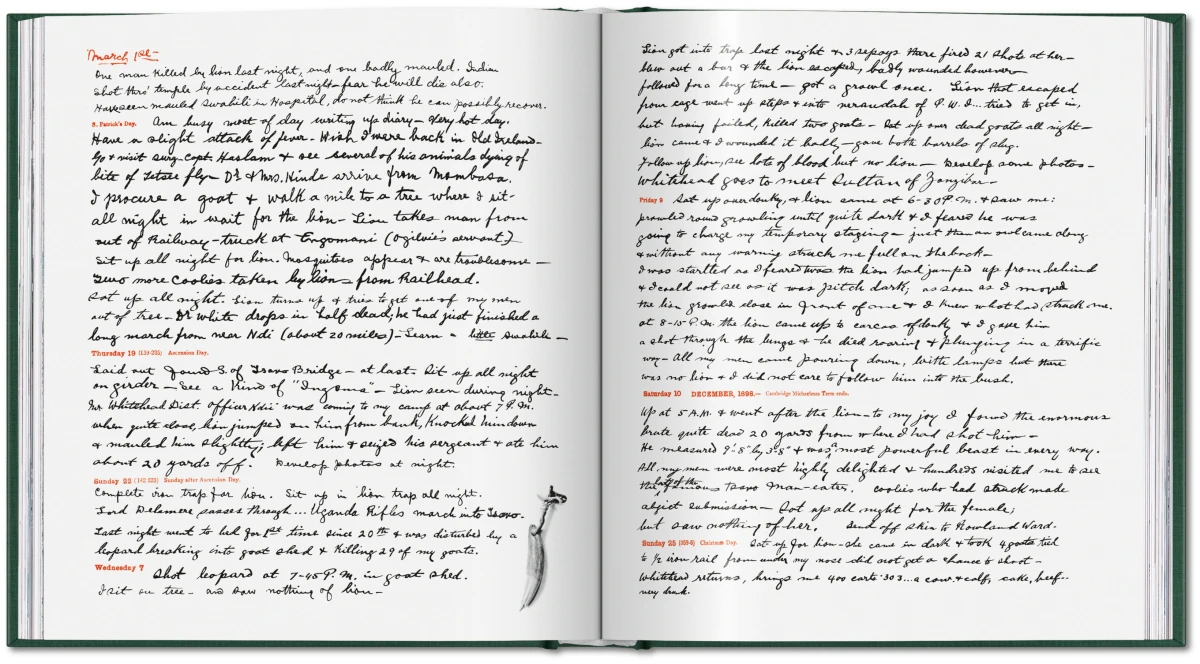 March 1st—
One man killed by lion last night, and one badly mauled. Indian
shot thro' temple by accident last night—fear he will die also.
Have seen mauled Swahili in Hospital, do not think he can possibly recover.
S. Patrick's Day. Am busy most of day writing up diary—Very hot day.
Have a slight attack of fever—Wish I were back in Old Ireland—
Go & visit Surg-Capt. Haslam & see several of his animals dying of
bite of Tsetse fly—Dr. & Mrs. Hinde arrive from Mombasa.
I procure a goat & walk a mile to a tree where I sit—
all night in wait for the lion—Lion takes man from
out of Railway-truck at Engomani (Ogilvie's servant)
Sit up all night for lion. Mosquitoes appear & are troublesome—
Two more coolies taken by lions from Railhead.
Sat up all night. Lion turns up & tries to get one of my men
out of tree—Dr. White drops in half dead, he had just finished a
long march from near Ndi (about 20 miles)—Learn a little Swahili—
Thursday 19 (139-226) Ascension Day.
Laid out found S. of Tsavo Bridge—at last. Sit up all night
on girder—See a kind of "Ingoma"—Lion seen during night—
Mr. Whitehead Dist. Officer Ndii was coming to my camp at about 7 P.M.
when quite close, lion jumped on him from bank, Knocked him down
& mauled him slightly; left him & seized his sergeant & ate him
about 20 yards off. Develop photos at night.
Sunday 22 (142-223) Sunday after Ascension Day.
Complete iron trap for lion. Sit up in lion trap all night.
Lord Delamere passes through... Uganda Rifles march into Tsavo.
Last night went to bed for 1st time since 20th & was disturbed by a
leopard breaking into goat shed & killing 29 of my goats.
Wednesday 7 Shot leopard at 7-45 P.M. in goat shed.
I sit on tree—and saw nothing of lion—
Lion got into trap last night & 3 sepoys there fired 21 shots at her—
blew out a bar & the lion escaped, badly wounded however
followed for a long time—got a growl once. Lion that escaped
from cage went up steps & into verandah of P.W.I... tried to get in,
but having failed, killed two goats—Sat up over dead goats all night—
lion came & I wounded it badly—gave both barrels of slug.
Follow up lion, see lots of blood but no lion—Develop some photos—
Whitehead goes to meet Sultan of Zanzibar—
Friday 9 Sat up over donky, & lion came at 6-30 P.M. & saw me:
prowled round growling until quite dark & I feared he was
going to charge my temporary staging—just then an owl came along
& without any warning struck me full on the back—
I was startled as I feared was the lion had jumped up from behind
& I could not see as it was pitch dark, as soon as I moved
the lion growled close in front of me & I knew what had struck me.
at 8-15 P.M. the lion came up to carcas of donky & I gave him
a shot through the lungs & he died roaring & plunging in a terrific
way—All my men came pouring down, with lamps but there
was no lion & I did not care to follow him into the bush.
Saturday 10 DECEMBER, 1898.— Cambridge Michaelmas Term ends.
Up at 5 A.M. & went after the lion—to my joy I found the enormous
brute quite dead 20 yards from where I had shot him—
He measured 9'-8" by 3'-8" & was a most powerful beast in every way.
All my men were most highly delighted & hundreds visited me to see
the last of the famous Tsavo Man-eater. Coolies who had struck made
abject submission—Sat up all night for the female;
but saw nothing of her. Send off skin to Rowland Ward.
Sunday 25 (359-6) Christmas Day. Sat up for lion—she came in dark & took 4 goats tied
to ½ iron rail from under my nose did not get a chance to shoot—
Whitehead returns, brings me 400 carts .303... a cow & calf, cake, beef..
very drunk.